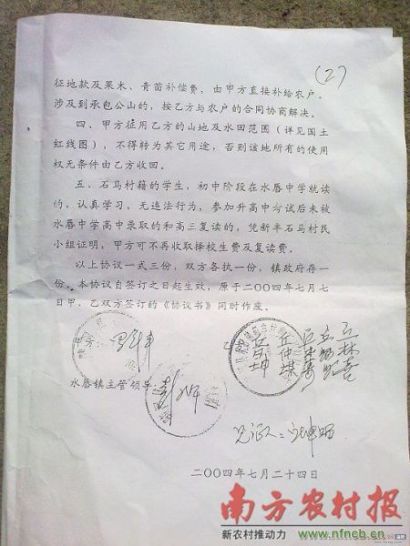 (2)
征地款及果木、青苗补偿费，由甲方直接补给农户。
涉及到承包公山的，按乙方与农户的合同协商解决。
四、甲方征用乙方的山地及水田范围（详见国土
红线图），不得转为其它用途，否则该地所有的使用
权无条件由乙方收回。
五、石马村籍的学生，初中阶段在水唇中学就读
的，认真学习，无违法行为，参加升高中匀试后未被
水唇中学高中录取的和高三复读的，凭新丰石马村民
小组证明，甲方可不再收取择校生费及复读费。
以上协议一式三份，双方各执一份，镇政府存一
份。本协议自签订之日起生效，原于二００四年七月七
日甲、乙双方签订的《协议书》同时作废。
水唇镇主管领导
见证人：
二００四年七月二十四日
南方农村报
新农村推动力 www.nfncb.cn